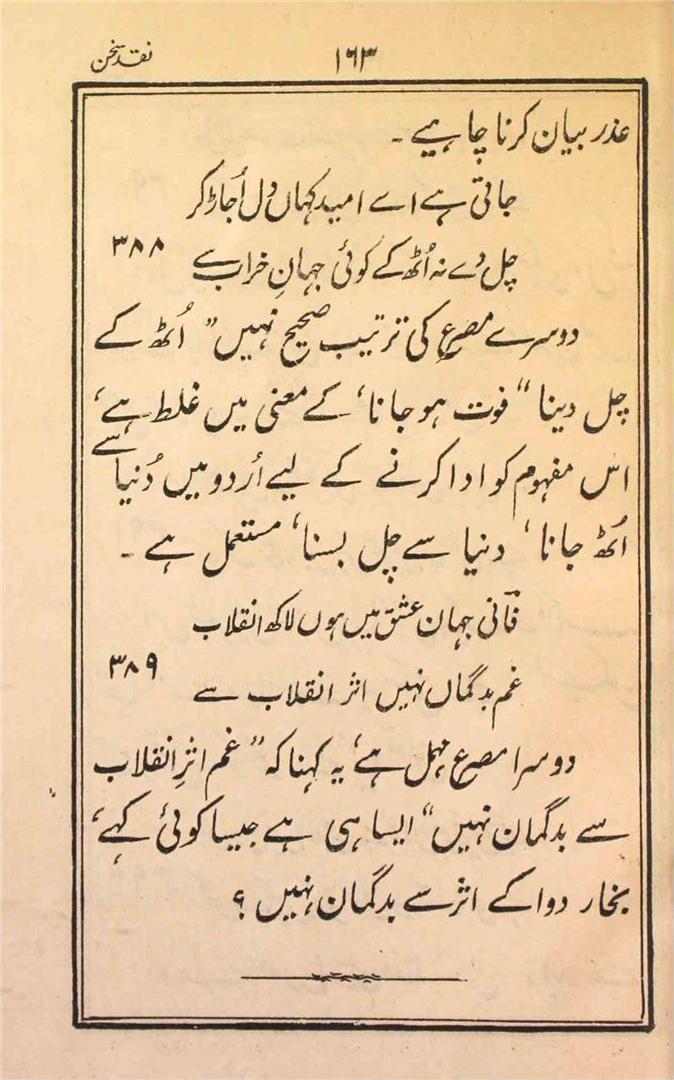 نقد سخن
۱۶۳
عذر بیان کرنا چاہیے ۔
جاتی ہے اے امید کہاں دل اُجاڑ کر
چل دے نہ اُٹھ کے کوئی جہانِ خراب سے ۳۸۸
دوسرے مصرع کی ترتیب صحیح نہیں ” اُٹھ کے
چل دینا “ فوت ہو جانا، کے معنی میں غلط ہے،
اس مفہوم کو ادا کرنے کے لیے اُردو میں دُنیا سے
اُٹھ جانا ، دنیا سے چل بسنا، مستعمل ہے ۔
فانی جہان عشق میں ہوں لاکھ انقلاب
غم بدگماں نہیں اثر انقلاب سے ۳۸۹
دوسرا مصرع مہمل ہے، یہ کہنا کہ ” غم اثرِ انقلاب
سے بدگمان نہیں “ ایسا ہی ہے جیسا کوئی کہے،
بخار دوا کے اثر سے بدگمان نہیں ؟